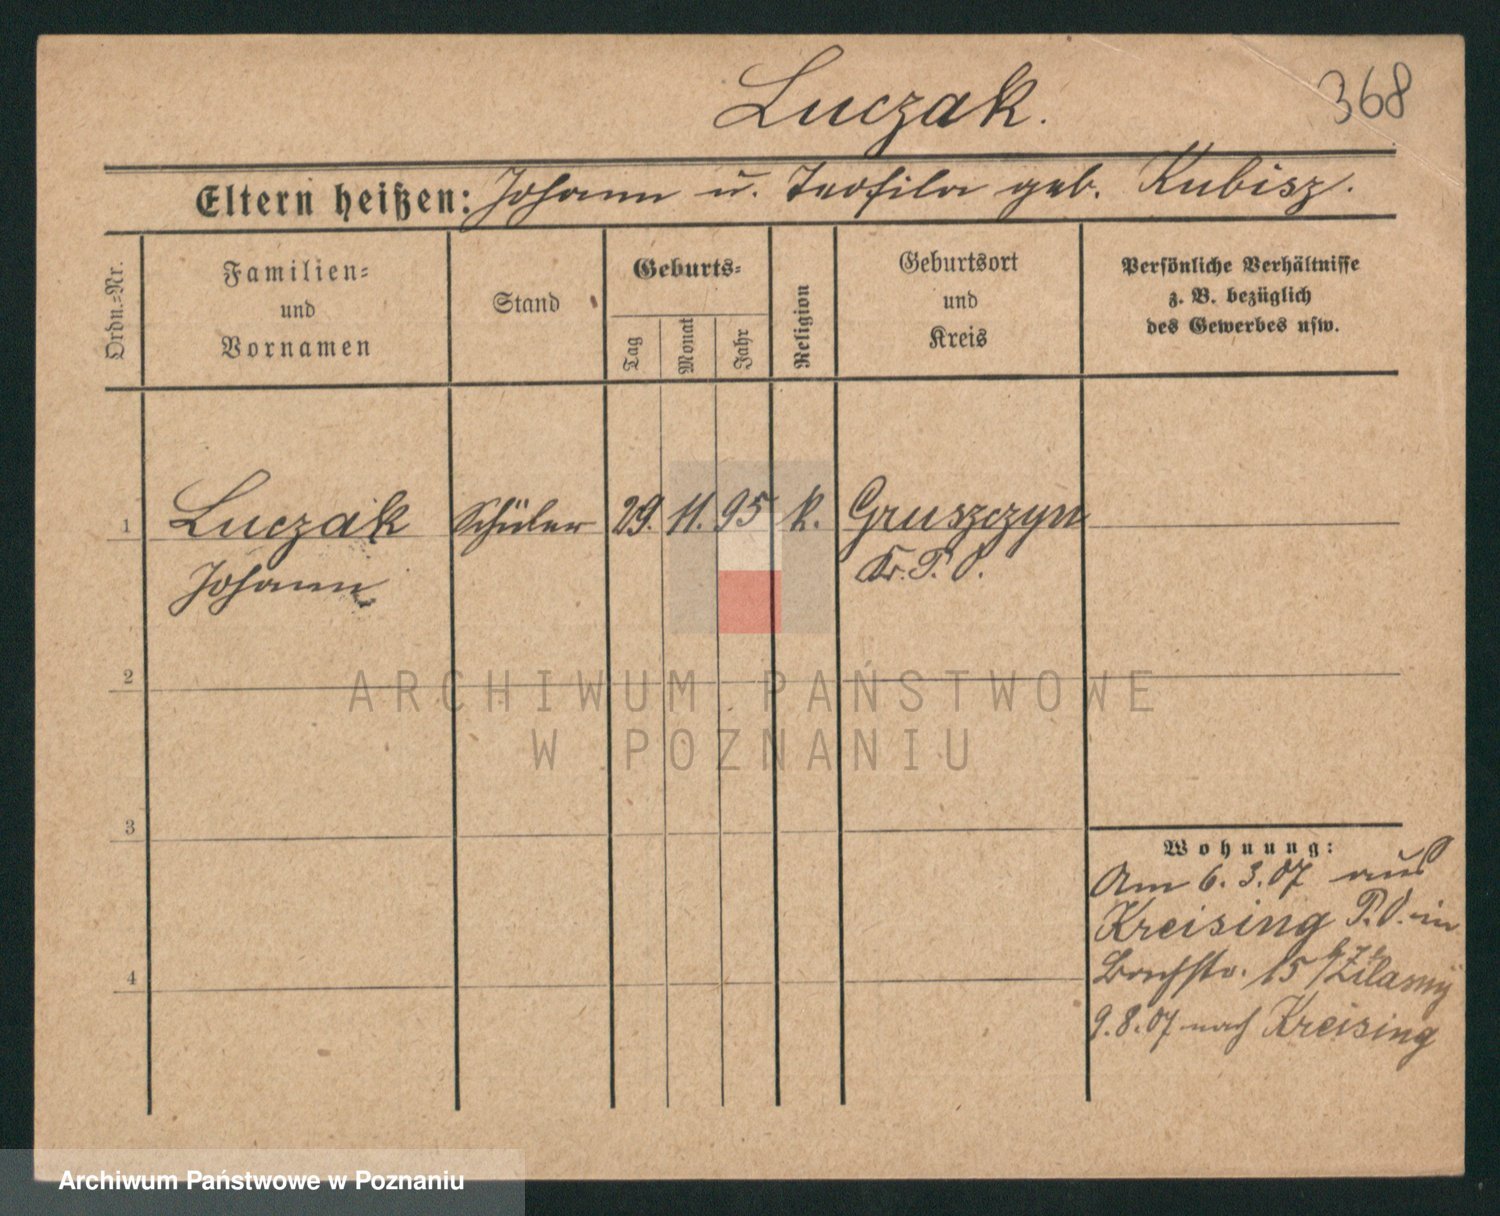 Luczak.
368
Eltern heißen: Johann u. Teofila geb. Kubisz.
Ordn.-Nr.
Familien-
und
Vornamen
Stand
Geburts-
Tag
Monat
Jahr
Religion
Geburtsort
und
Kreis
Persönliche Verhältnisse
z. B. bezüglich
des Gewerbes usw.
1
Luczak Schüler 29. 11. 95 k. Gruszczyn
Johann Kr. P. O.
2
ARCHIWUM PAŃSTWOWE
W POZNANIU
3
Wohnung:
Am 6. 3. 07 aus
Kreising P. O. in
15
4
9. 8. 07 nach Kreising
Archiwum Państwowe w Poznaniu